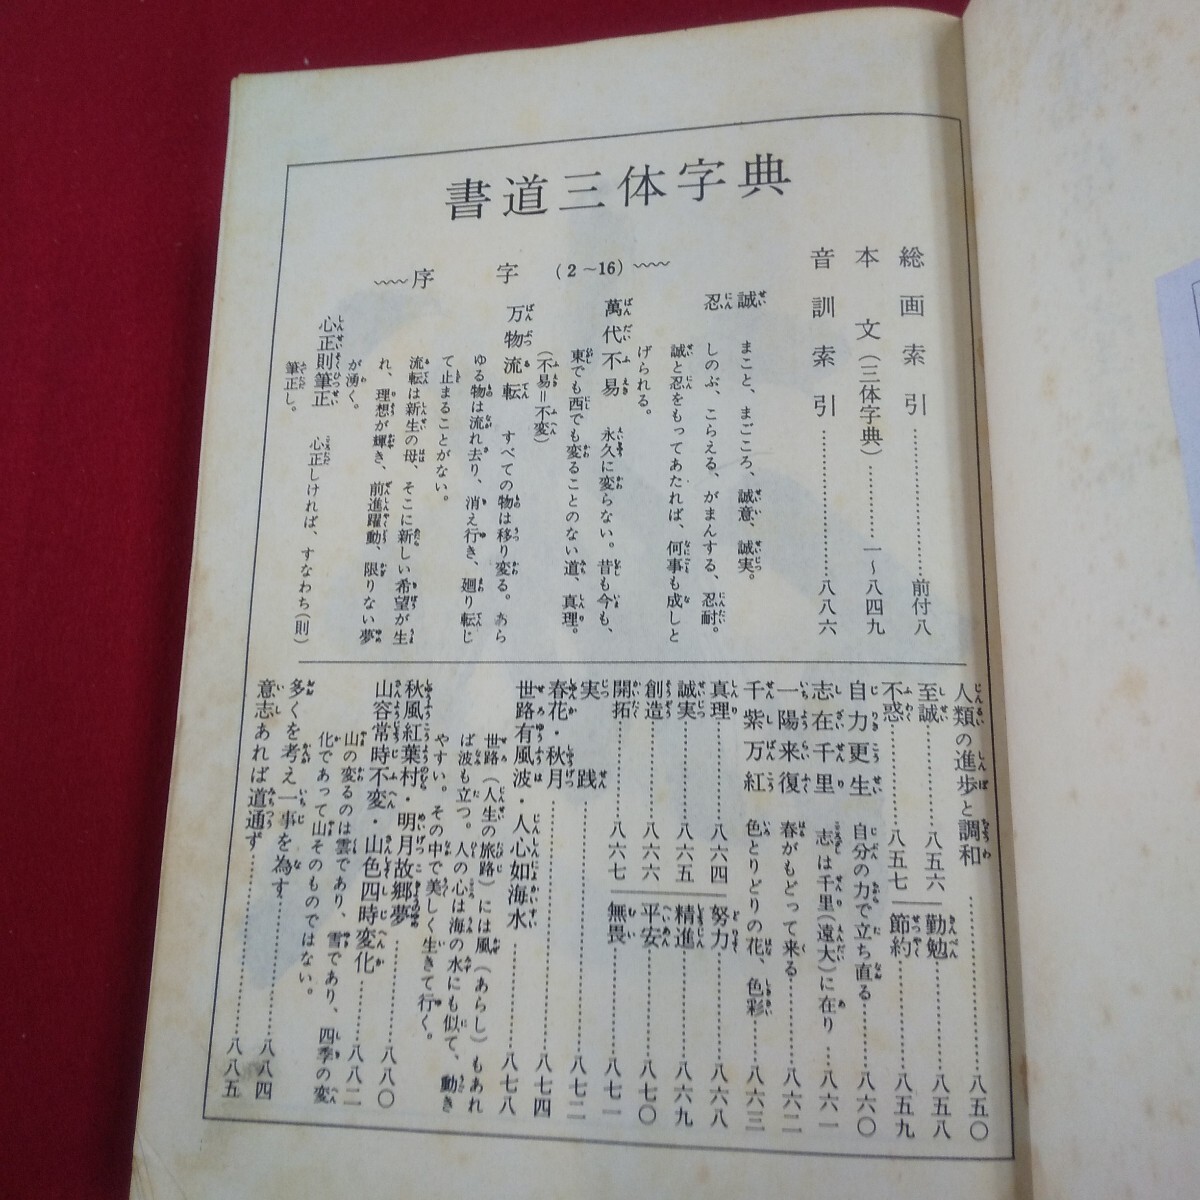 書道三体字典
総画索引……………………前付八
本文（三体字典）…………一～八四九
音訓索引……………………八八六
序字（2～16）
誠 まこと、まごころ、誠意、誠実。
忍 しのぶ、こらえる、がまんする、忍耐。
誠と忍をもってあたれば、何事も成しと
げられる。
萬代不易 永久に変らない。昔も今も、
東でも西でも変ることのない道、真理。
（不易＝不変）
万物流転 すべての物は移り変る。あら
ゆる物は流れ去り、消え行き、廻り転じ
て止まることがない。
流転は新生の母、そこに新しい希望が生
れ、理想が輝き、前進躍動、限りない夢
が湧く。
心正則筆正 心正しければ、すなわち（則）
筆正し。
人類の進歩と調和……………………八五〇
至誠…………八五六 勤勉…………八五八
不惑…………八五七 節約…………八五九
自力更生 自分の力で立ち直る……八六〇
志在千里 志は千里（遠大）に在り…八六一
一陽来復 春がもどって来る………八六二
千紫万紅 色とりどりの花、色彩…八六三
真理…………八六四 努力…………八六八
誠実…………八六五 精進…………八六九
創造…………八六六 平安…………八七〇
開拓…………八六七 無畏…………八七一
実践……………………八七二
春花・秋月……………………八七四
世路有風波・人心如海水…………八七八
世路（人生の旅路）には風（あらし）もあれ
ば波も立つ。人の心は海の水にも似て、動き
やすい。その中で美しく生きて行く。
秋風紅葉村・明月故郷夢…………八八〇
山容常時不変・山色四時変化………八八二
山の変るのは雲であり、雪であり、四季の変
化であって山そのものではない。
多くを考え一事を為す……………………八八四
意志あれば道通ず……………………八八五